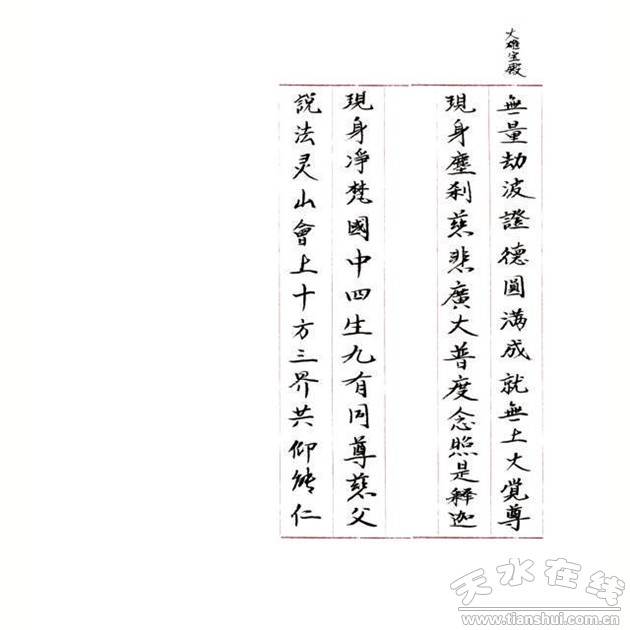 大雄宝殿
無量劫波證德圓满成就無上大覚尊
現身塵刹慈悲廣大普度念照是释迦
現身净梵國中四生九有同尊慈父
説法灵山會上十方三界共仰能仁
天水在线
www.tianshui.com.cn